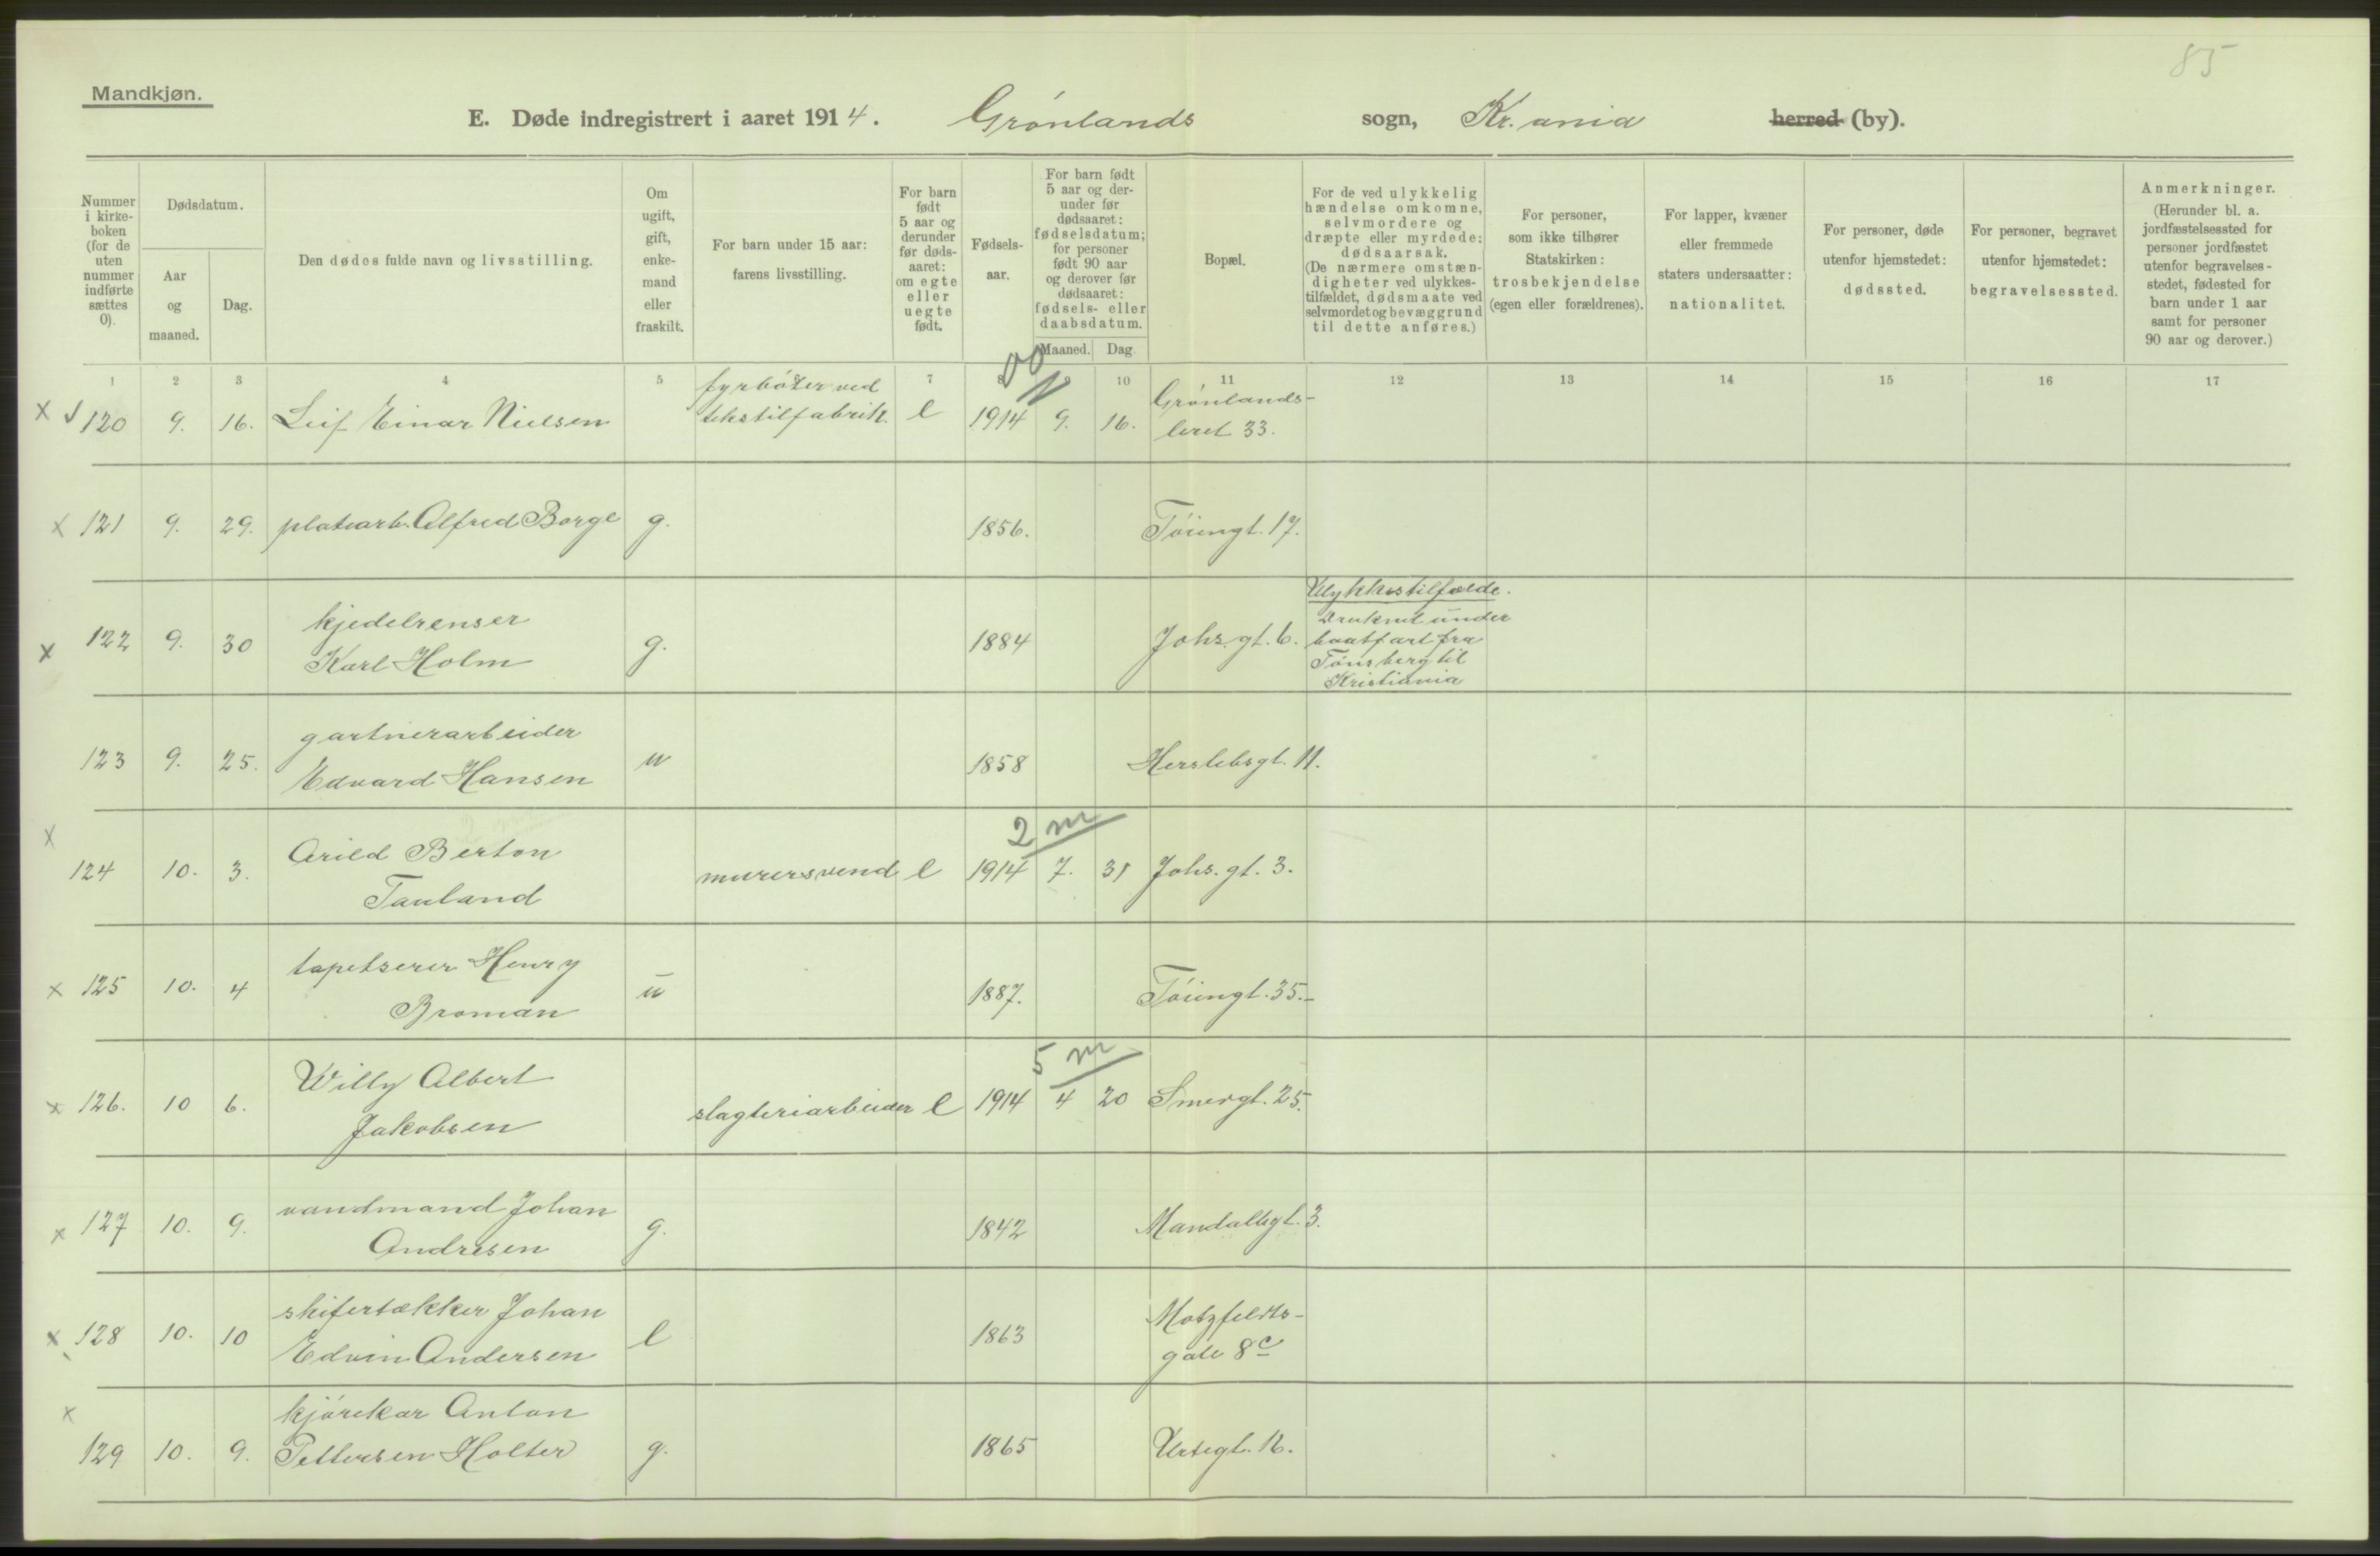 85
Mandkjøn.
E. Døde indregistrert i aaret 1914. Grønlands sogn, Kr.ania herred (by).
Nummer i kirke-boken (for de uten nummer indførte sættes 0).
Dødsdatum.
Aar og maaned.
Dag.
Den dødes fulde navn og livsstilling.
Om ugift, gift, enke-mand eller fraskilt.
For barn under 15 aar: farens livsstilling.
For barn født 5 aar og derunder før døds-aaret: om egte eller uegte født.
Fødsels-aar.
For barn født 5 aar og der-under før dødsaaret: fødselsdatum; for personer født 90 aar og derover før dødsaaret: fødsels- eller daabsdatum.
Maaned. Dag
Bopæl.
For de ved ulykkelig hændelse omkomne, selvmordere og dræpte eller myrdede: dødsaarsak. (De nærmere omstæn-digheter ved ulykkes-tilfældet, dødsmaate ved selvmordet og bevæggrund til dette anføres.)
For personer, som ikke tilhører Statskirken: trosbekjendelse (egen eller forældrenes).
For lapper, kvæner eller fremmede staters undersaatter: nationalitet.
For personer, døde utenfor hjemstedet: dødssted.
For personer, begravet utenfor hjemstedet: begravelsessted.
Anmerkninger. (Herunder bl. a. jordfæstelsessted for personer jordfæstet utenfor begravelses-stedet, fødested for barn under 1 aar samt for personer 90 aar og derover.)
1 2 3 4 5 7 8 9 10 11 12 13 14 15 16 17
x 120 9. 16. Leif Einar Nielsen fyrbøter ved tekstilfabrik. e 1914 9. 16. Grønlands-leret 33.
x 121 9. 29. platearb. Alfred Borge g. 1856. Tøiengt. 17.
x 122 9. 30 kjedelrenser Karl Holm g. 1884 Johs. gt. 6. Ulykkestilfælde. Druknet under baatfart fra Tønsberg til Kristiania
123 9. 25. gartnerarbeider Edvard Hansen u 1858 Herslebsgt. 11.
2 m
x 124 10. 3. Arild Berton Tanland murersvend e 1914 7. 31 Johs. gt. 3.
x 125 10. 4 tapetserer Henry Broman u 1887. Tøiengt. 35.-
5 m
x 126. 10 6. Willy Albert Jakobsen slagteriarbeider e 1914 4 20 Smergt. 25.
x 127 10. 9. vandmand Johan Andresen g. 1842 Mandallsgt. 3.
x 128 10. 10 skifertækker Johan Edvin Andersen e 1863 Motzfeldts-gate 8c
x 129 10. 9. kjørekar Anton Pettersen Holter g. 1865 Urtegt. 16.